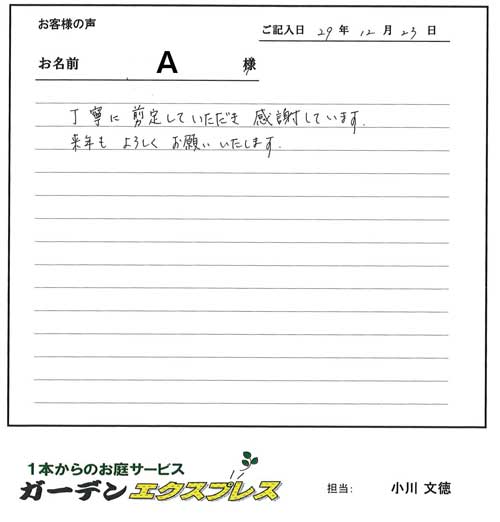 お客様の声
ご記入日 29年 12月 23日
お名前 A 様
丁寧に剪定していただき感謝しています.
来年もよろしくお願いいたします.
1本からのお庭サービス
ガーデンエクスプレス
担当: 小川 文徳